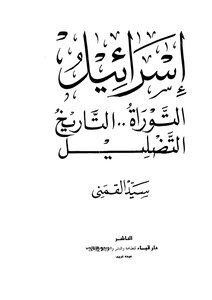 إسرائيل
التوراة .. التاريخ
التضليل
سيد القمني
الناشر
دار قباء للطباعة والنشر والتوزيع